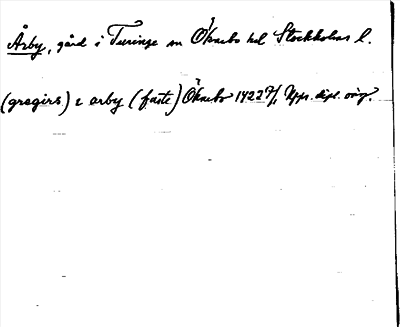 Årby, gård i Turinge sn Öknebo hd Stockholms l.
(gregirs) i arby (faste) Öknebo 1422 7/1 Upps. dipl. orig.